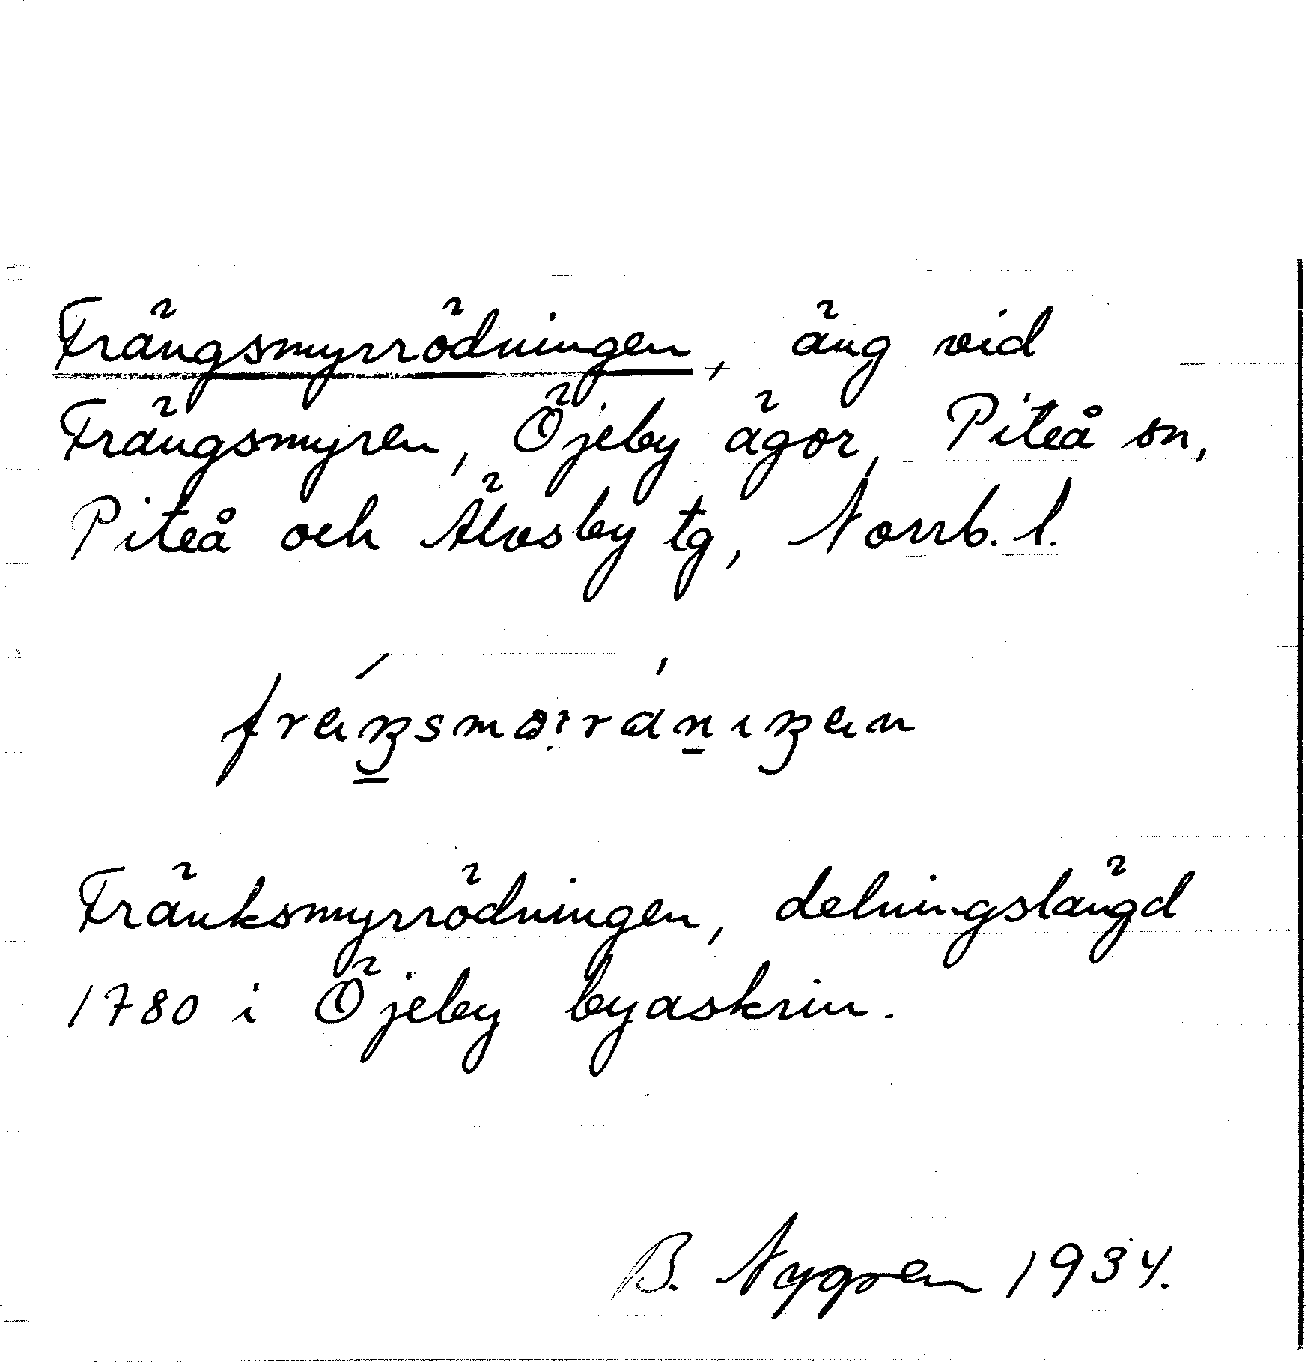 Frängsmyrrödningen, äng vid
Frängsmyren, Öjeby ägor, Piteå sn,
Piteå och Älvsby tg, Norrb. l.
Fränksmyrrödningen, delningslängd
1780 i Öjeby byaskrin.
B. Nygren 1934.